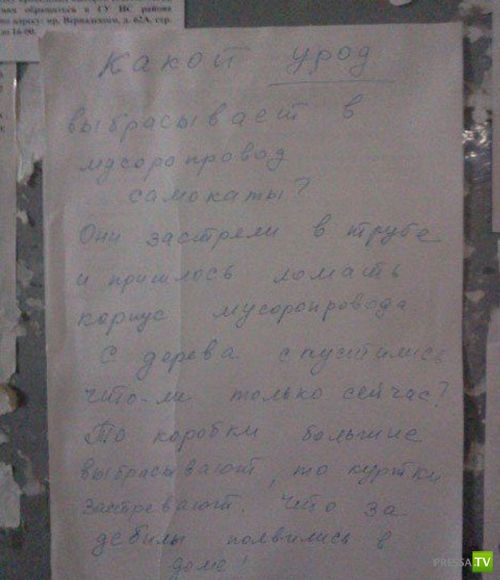 мах обращаться в ГУ ИС района
по адресу: пр. Вернадского, д. 62А, стр.
до 16-00.
Какой урод
выбрасывает в
мусоропровод
самокаты?
Они застряли в трубе
и пришлось ломать
корпус мусоропровода
С дерева спустились
что-ли только сейчас?
То коробки большие
выбрасывают, то куртки
застревают. Что за
дебилы появились в
доме!
PRESSA.TV